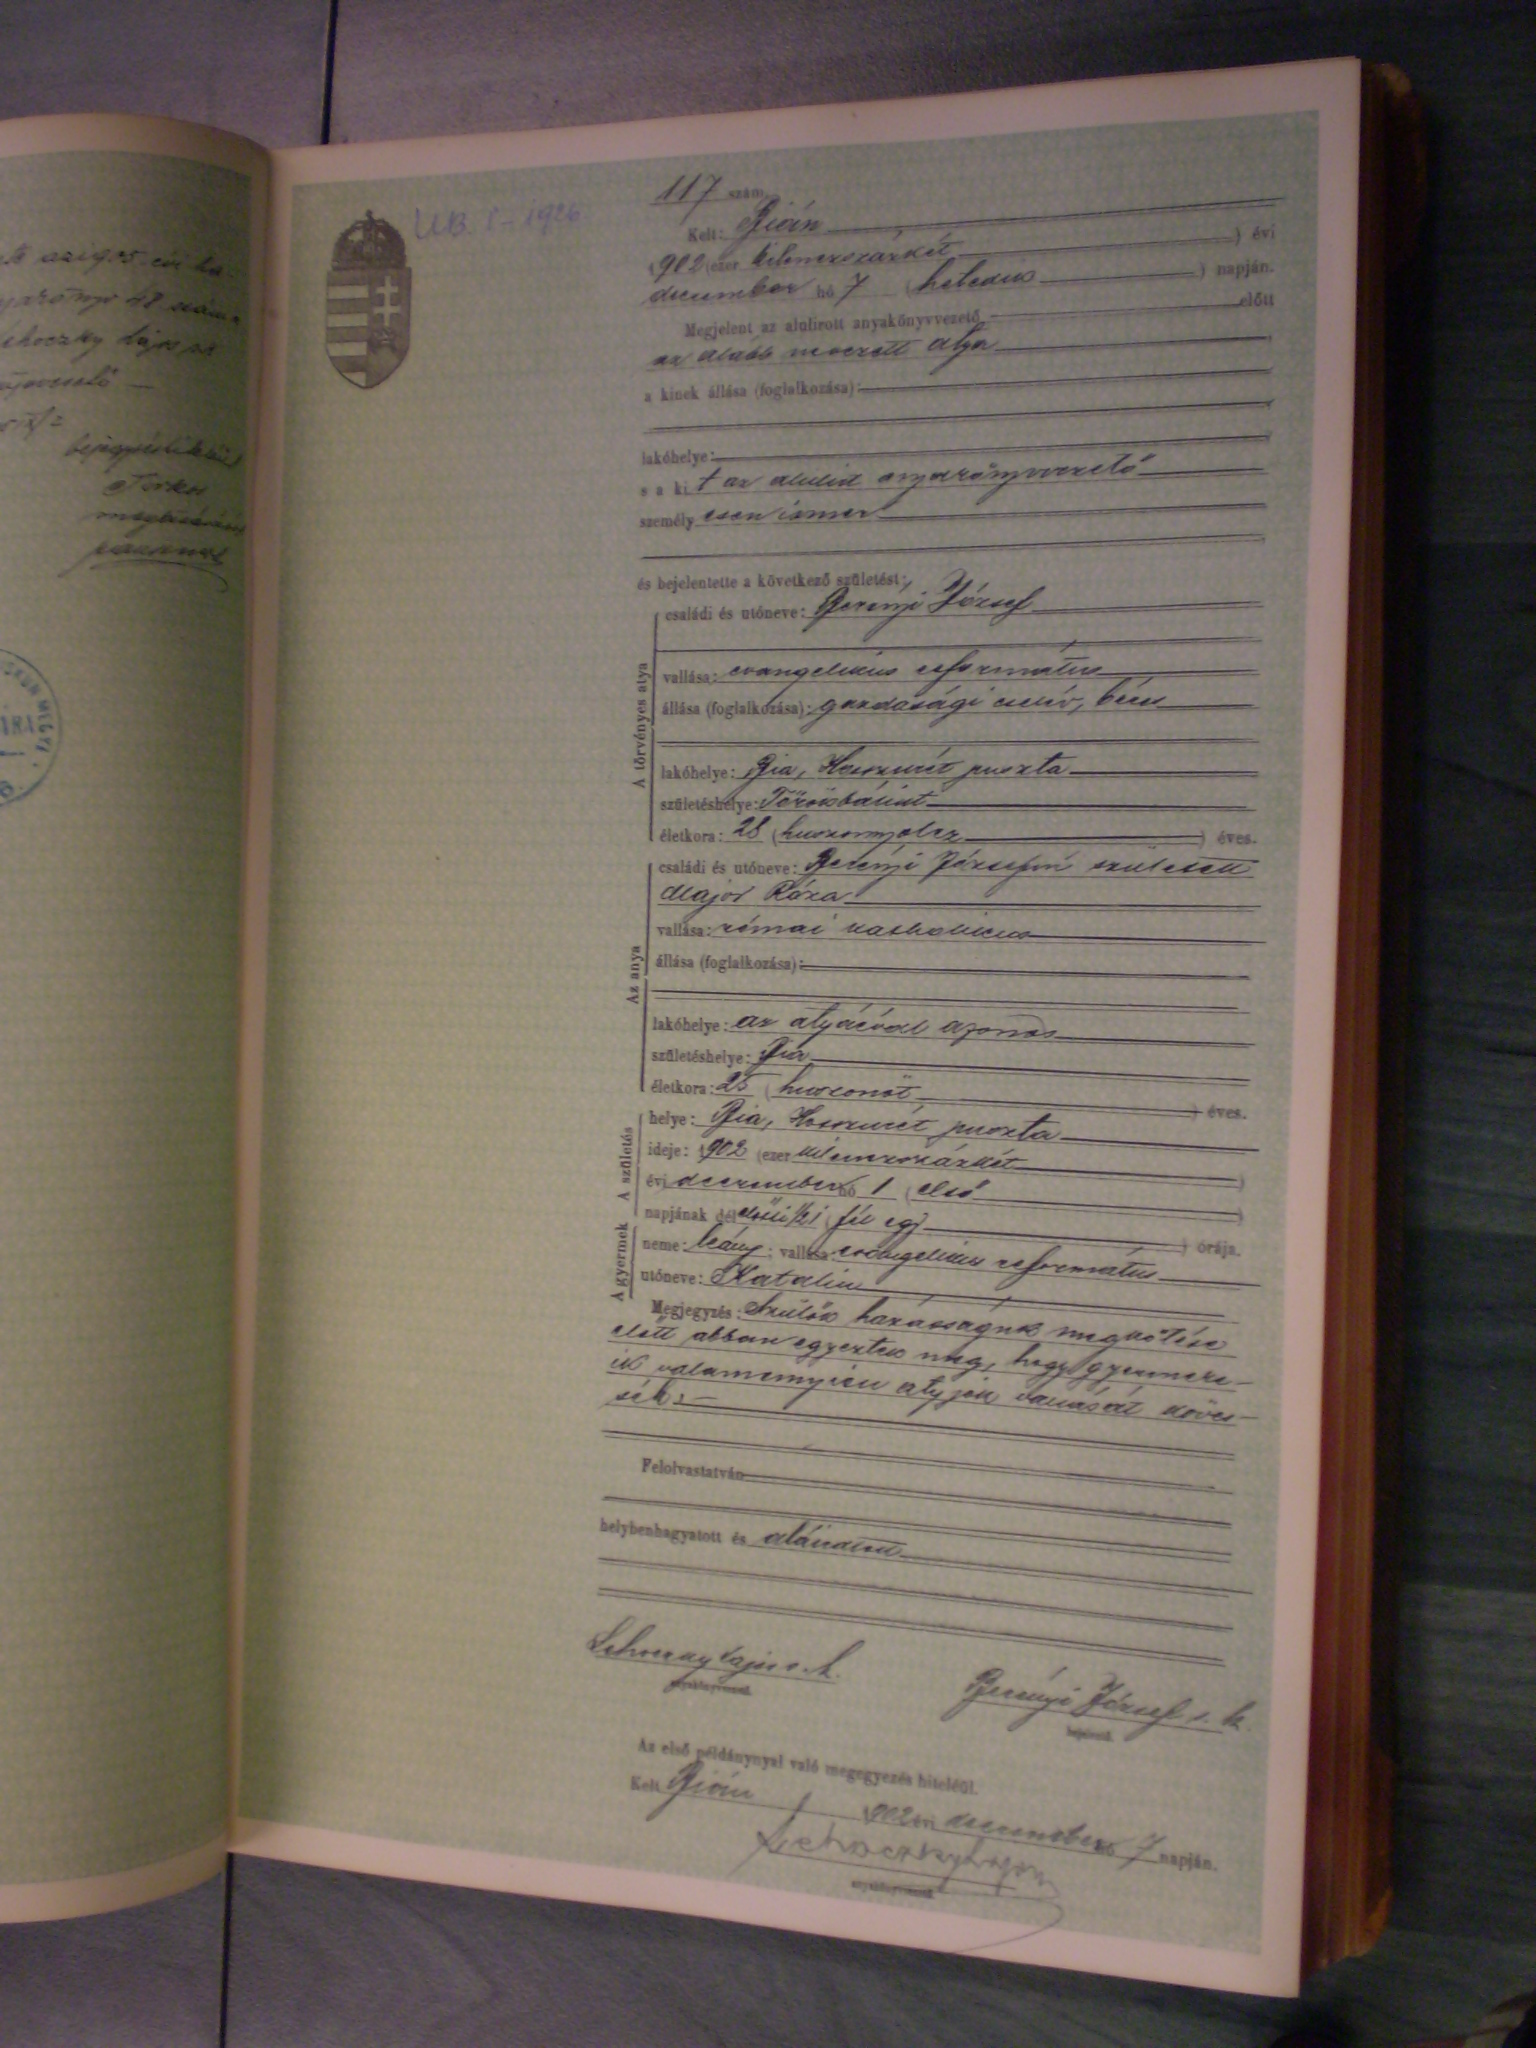 117 szám.
U.B. I – 1926
Kelt: Bián
1902 (ezer kilenczszázkét ) évi
deczember hó 7 (hetedik ) napján.
Megjelent az alulirott anyakönyvvezető előtt
az alább nevezett atya
a kinek állása (foglalkozása):
lakóhelye:
s a ki t az alulirt anyakönyvvezető
személy esen ismer
és bejelentette a következő születést:
A törvényes atya
családi és utóneve: Berényi József
vallása: evangelikus református
állása (foglalkozása): gazdasági cseléd, béres
lakóhelye: Bia, Hosszurét puszta
születéshelye: Törökbálint
életkora: 28 (huszonnyolcz ) éves.
Az anya
családi és utóneve: Berényi Józsefné született
Major Róza
vallása: római katholikus
állása (foglalkozása):
lakóhelye: az atyáéval azonos
születéshelye: Bia
életkora: 25 (huszonöt ) éves.
A születés
helye: Bia, Hosszurét puszta
ideje: 1902 (ezer kilenczszázkét )
évi deczember hó 1 (első )
napjának délelőtti ½1 (fél egy ) órája.
A gyermek
neme: leány; vallása: evangelikus református
utóneve: Katalin
Megjegyzés: Szülők házasságuk megkötése
előtt abban egyeztek meg, hogy gyermeke-
ik valamennyien atyjuk vallását köves-
sék. –
Felolvastatván
helybenhagyatott és aláiratott
Lehoczky Lajos s. k.
anyakönyvvezető.
Berényi József s. k.
bejelentő.
Az első példánynyal való megegyezés hiteléül.
Kelt Bián 1902 évi deczember hó 7 napján.
Lehoczky Lajos
anyakönyvvezető